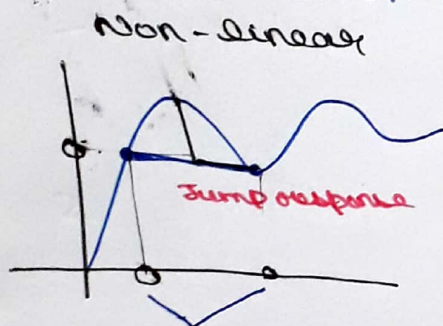 Non-linear
Jump response